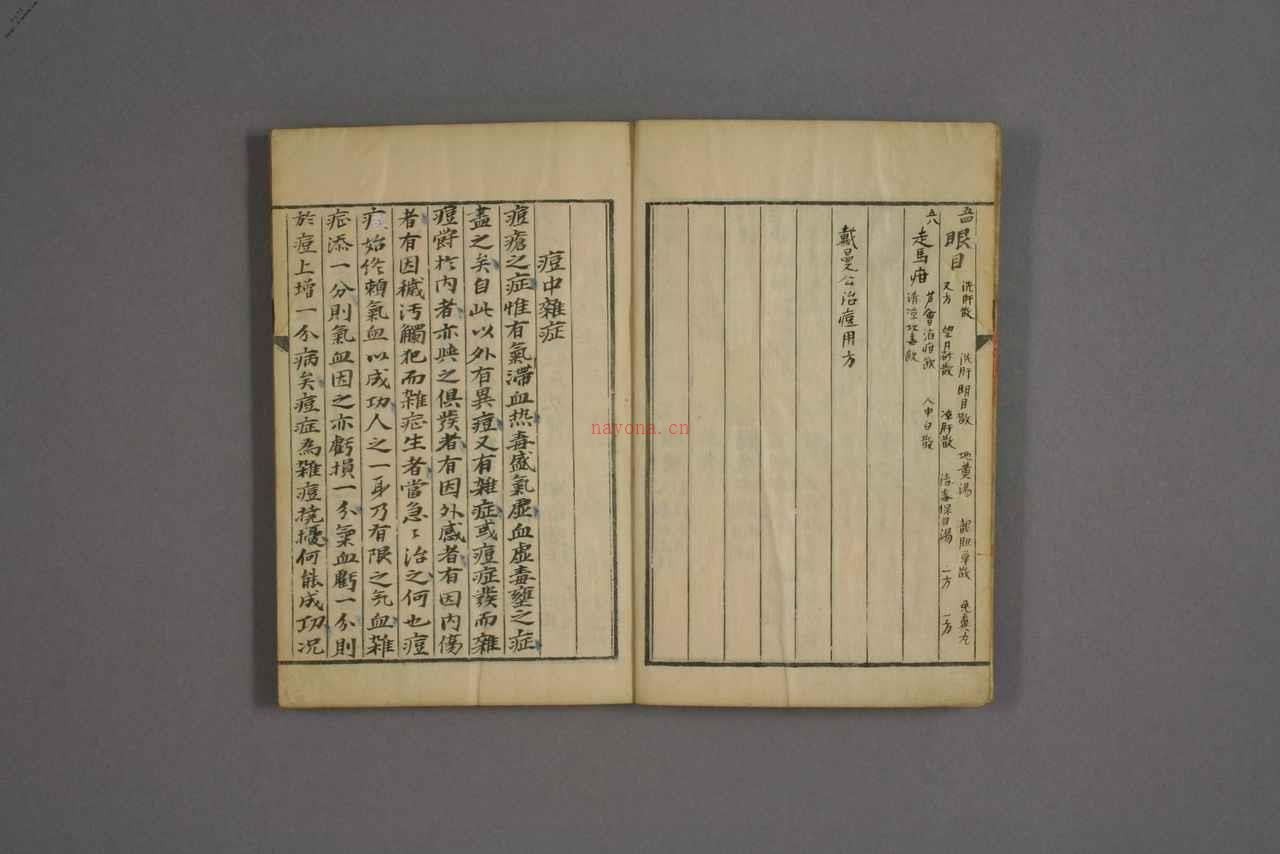 眼目
洗肝散 洗肝明目散 地黄湯
又方 望月砂散 凉肝散 一方 一方
走馬疳
清凉攻毒飲
人中白散
戴曼公治痘用方
痘中雜症
痘瘡之症惟有氣滯血热毒盛氣虚血虚毒壅之症
盡之矣自此以外有異痘又有雑症或痘症發而雜
痘欝於内者亦與之俱發者有因外感者有因内傷
者有因穢汚觸犯而雜症生者當急〻治之何也痘
疾始終頼氣血以成功人之一身乃有限之気血雜
症添一分則氣血因之亦虧損一分氣血虧一分則
於痘上增一分病矣痘症為雜痘撓擾何能成功况
nayona.cn